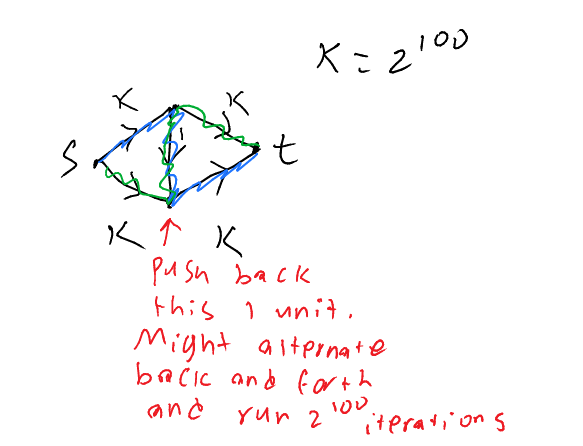 K = 2^100
K
K
1
s
t
K
K
Push back
this 1 unit.
Might alternate
back and forth
and run 2^100 iterations